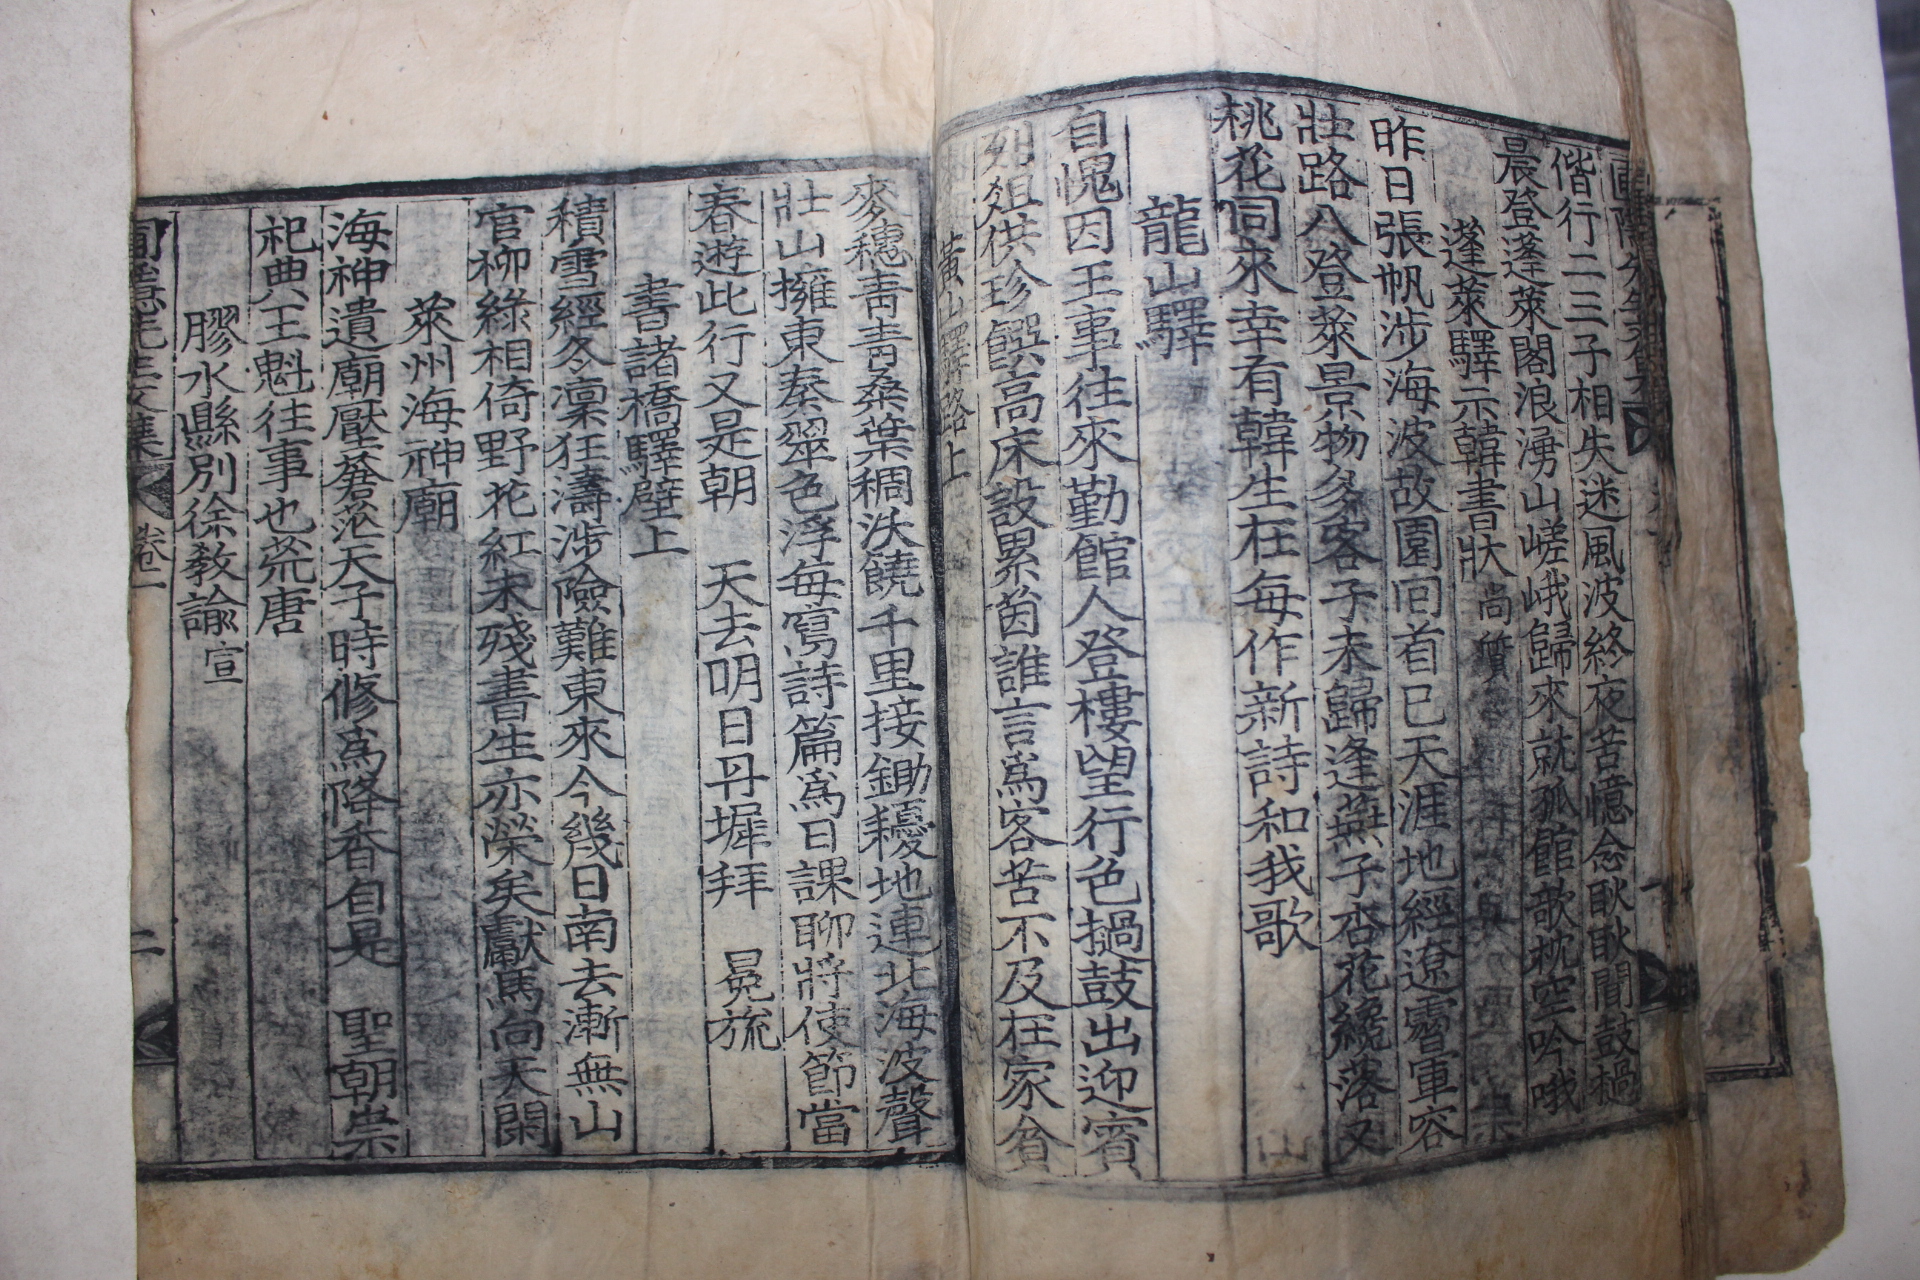 偕行二三子相失迷風波終夜苦憶念耿耿聞鼓撾
晨登蓬萊閣浪湧山嵯峨歸來就孤館欹枕空吟哦
蓬萊驛示韓書狀尚質
昨日張帆涉海波故園回首已天涯地經遼霫軍容
壯路入登萊景物多客子未歸逢燕子杏花纔落又
桃花同來幸有韓生在每作新詩和我歌
龍山驛
自愧因王事往來勤館人登樓望行色撾鼓出迎賓
列俎供珍饌高床設累茵誰言爲客苦不及在家貧
黃山驛路上
麥穗靑靑桑葉稠沃饒千里接鋤耰地連北海波聲
壯山擁東秦翠色浮每寫詩篇爲日課聊將使節當
春遊此行又是朝 天去明日丹墀拜 冕旒
書諸橋驛壁上
積雪經冬凜狂濤涉險難東來今幾日南去漸無山
官柳綠相倚野花紅未殘書生亦榮矣獻馬向天閑
萊州海神廟
海神遺廟壓蒼茫天子時修爲降香自是 聖朝崇
祀典王魁往事也荒唐
膠水縣別徐敎諭宣
陶隱先生文集
卷二
二